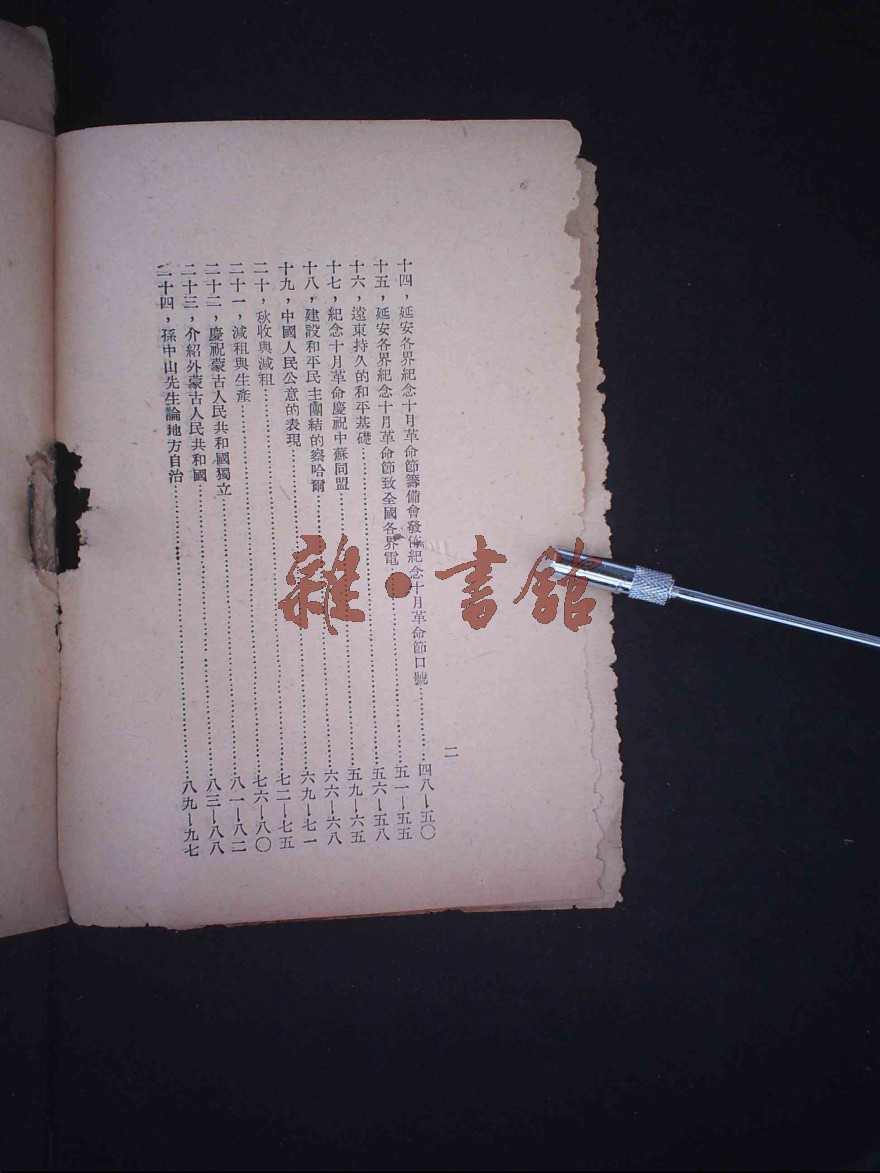 二
十四，延安各界紀念十月革命節籌備會發佈紀念十月革命節口號…………四八—五〇
十五，延安各界紀念十月革命節致全國各界電…………五一—五五
十六，遠東持久的和平基礎…………五六—五八
十七，紀念十月革命慶祝中蘇同盟…………五九—六五
十八，建設和平民主團結的察哈爾…………六六—六八
十九，中國人民公意的表現…………六九—七一
二十，秋收與減租…………七二—七五
二十一，減租與生產…………七六—八〇
二十二，慶祝蒙古人民共和國獨立…………八一—八二
二十三，介紹外蒙古人民共和國…………八三—八八
二十四，孫中山先生論地方自治…………八九—九七
雜·書館